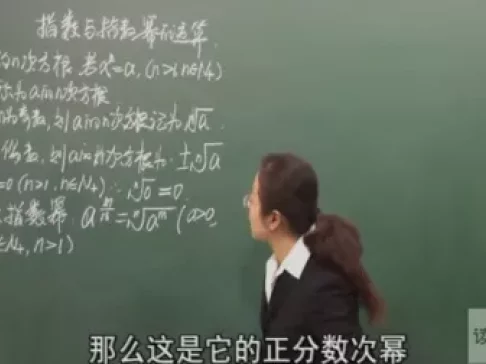 指数与指数幂的运算.
的n次方根 若xⁿ=a, (n>1, n∈N₊)
称为a的n次方根
为奇数, 则a的n次方根记为 ⁿ√a.
偶数, 则a的n次方根为 ±ⁿ√a
=0 (n>1, n∈N₊) ∴ ⁿ√0 = 0.
指数幂. a^(m/n) = ⁿ√(a^m) (a>0
∈N₊, n>1)
那么这是它的正分数次幂
读